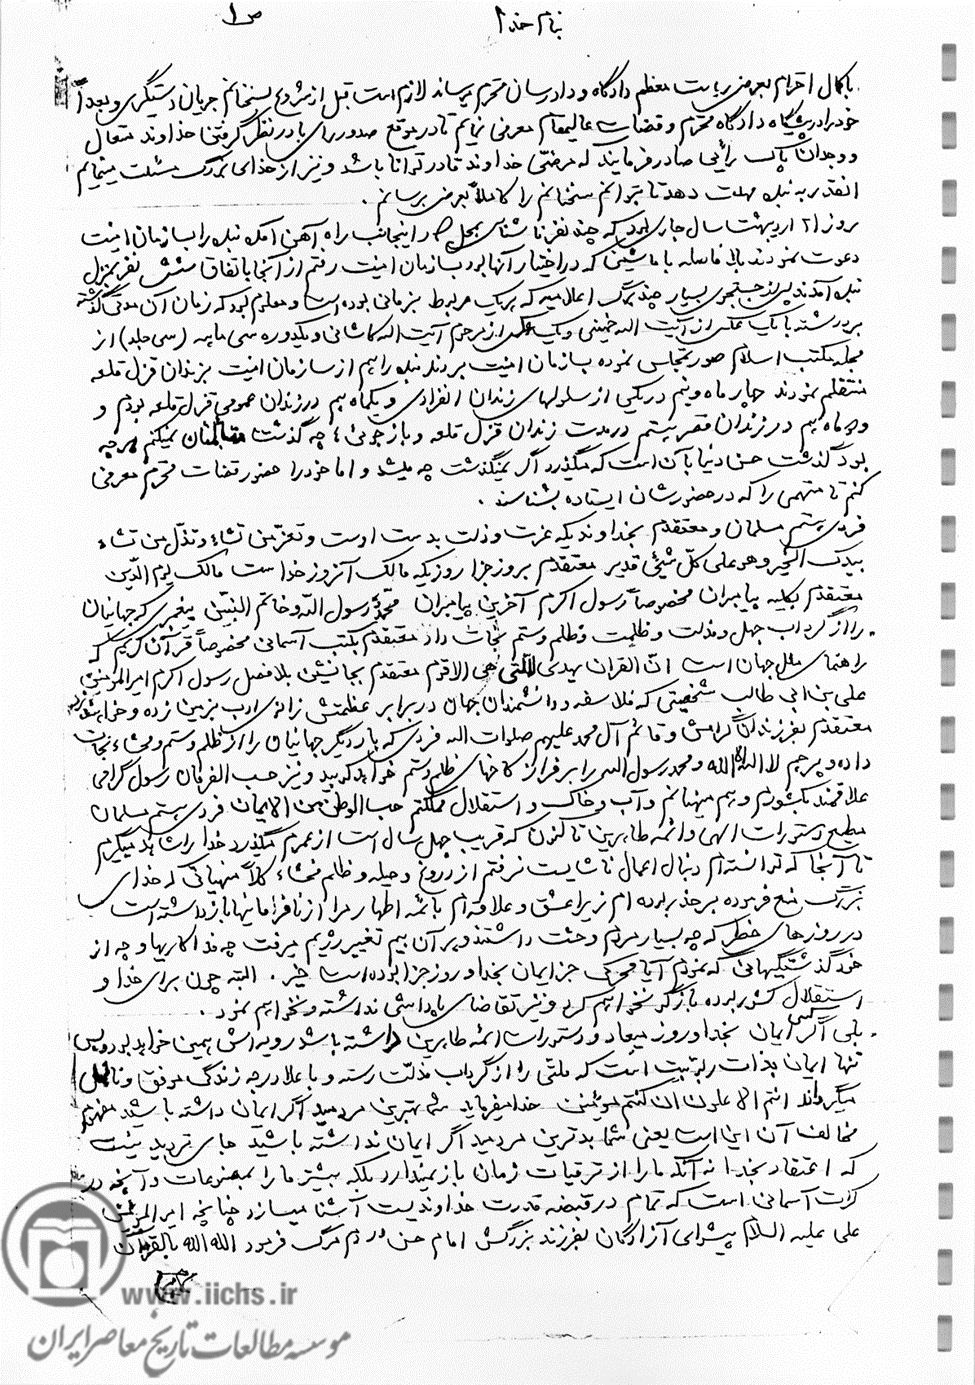 بنام خدا ص ۱
با کمال احترام بعرض ریاست معظم دادگاه و دادرسان محترم میرساند لازم است قبل از شروع بسخنانم جریان دستگیری و بعداً
خود را در پیشگاه دادگاه محترم و قضات عالیمقام معرفی نمایم تا در موقع صدور رای با در نظر گرفتن خداوند متعال
و وجدان پاک رأیی صادر فرمایند که مرضی خداوند قادر توانا باشد و نیز از خدای بزرگ مسئلت مینمایم
آنقدر به بنده مهلت دهد تا بتوانم سخنانم را کاملاً بعرض برسانم .
روز ۲۱ اردیبهشت سال جاری بود که چند نفر ناشناس بمحل اینجانب راه آهن آمده بنده را بسازمان امنیت
دعوت نمودند بلافاصله با ماشینی که در اختیار آنها بود بسازمان امنیت رفتم از آنجا باتفاق شش نفر بمنزل
بنده آمدند پس از جستجوی بسیار چند برگ اعلامیه که هر یک مربوط بزمانی بوده است و معلوم بود که زمان آن مدتی گذشته
بر درشته با یک عکس از آیت اله خمینی و یک عکس از مرحوم آیت اله کاشانی و یکدوره سی ماهه (سی جلد) از
مجله مکتب اسلام صورتمجلس نموده بسازمان امنیت بردند بنده را هم از سازمان امنیت بزندان قزل قلعه
منتقلم نمودند چهار ماه و نیم در یکی از سلولهای زندان انفرادی و یکماه هم در زندان عمومی قزل قلعه بودم و
دو ماه هم در زندان قصر هستم در مدت زندان قزل قلعه و بازجوئی ها چه گذشت نمیکنم هر چه
بود گذشت حسن دنیا بآن است که میگذرد اگر نمیگذشت چه میشد و اما خود را حضور قضات محترم معرفی
کنم تا متهمی را که در حضورشان ایستاده بشناسند .
فردی هستم مسلمان و معتقدم بخداوندیکه عزت و ذلت بدست اوست و تعز من تشاء و تذل من تشاء
بیدک الخیر و هو علی کل شیئی قدیر معتقدم بروز جزا روزیکه مالک آنروز خداست مالک یوم الدین
معتقدم بکلیه پیامبران مخصوصاً رسول اکرم آخرین پیامبران محمد رسول الله و خاتم النبیین پیغمبری که جهانیان
را از گرداب جهل و مذلت و ظلمت و ظلم و ستم نجات داد معتقدم بکتب آسمانی مخصوصاً قرآن کریم که
راهنمای ملل جهان است ان القران یهدی للتی هی الاقوم معتقدم بجانشین بلافصل رسول اکرم امیرالمومنین
علی بن ابی طالب شخصیتی که فلاسفه و دانشمندان جهان در برابر عظمتش زانوی ادب بزمین زده و خواهند زد
معتقدم بفرزندان گرامش و قائم آل محمد علیهم صلوات اله فردی که بار دیگر جهانیان را از ظلم و ستم و فحشاء نجات
داده و پرچم لا اله الا الله و محمد رسول الله را بر فراز کاخهای ظلم و ستم خواهد کوبید و نیز حسب الفرمان رسول گرامی
علاقمند بکشورم و هم میهنانم و آب و خاک و استقلال مملکتم حب الوطن من الایمان فردی هستم مسلمان
مطیع دستورات الهی و ائمه طاهرین تا کنون که قریب چهل سال است از عمرم میگذرد خدا را شاهد میگیرم
تا آنجا که توانسته ام دنبال اعمال ناشایست نرفتم از دروغ و حیله و ظلم فحشاء کلاً منهیاتی که خدای
بزرگ منع فرموده بر حذر بوده ام زیرا عشق و علاقه ام بائمه اطهار مرا از نافرمانیها بازداشته است
در روزهای خطر که چه بسیار مردم وحشت داشتند و بر آن بیم تغییر رژیم میرفت چه فداکاریها و چه از
خود گذشتگیهائی که نمودم آیا محرک جز ایمان بخدا و روز جزا بوده است خیر . البته چون برای خدا و
استقلال کشور بوده بازگو نخواهم کرد و نیز تقاضای پاداشی نداشته و نخواهم نمود .
بلی اگر کسی ایمان بخدا و روز میعاد و دستورات ائمه طاهرین داشته باشد رویه اش همین خواهد بود و بس
تنها ایمان بذات ربانیت است که ملتی را از گرداب مذلت رسته و با علا درجه زندگی موفق و نائل
میگرداند انتم الاعلون ان کنتم مومنین خدا میفرماید شما بهترین مردمید اگر ایمان داشته باشید مفهوم
مخالف آن این است یعنی شما بدترین مردمید اگر ایمان نداشته باشید جای تردید نیست
که اعتقاد بخدا نه آنکه ما را از ترقیات زمان باز نمیدارد بلکه بیشتر ما را بمصنوعات و آنچه در
کرات آسمانی است که تمام در قبضه قدرت خداوندیست آشنا میسازد چنانچه امیرالمومنین
علی علیه السلام پیشوای آزادگان بفرزند بزرگش امام حسن در دم مرگ فرمود الله الله بالقرآن
www.iichs.ir
موسسه مطالعات تاریخ معاصر ایران